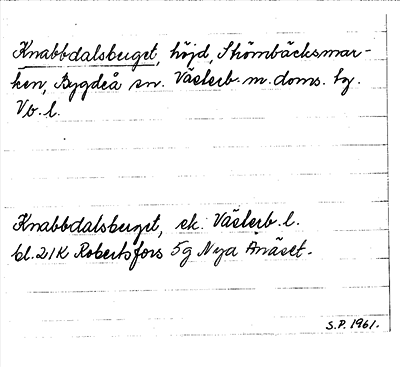 Knabbdalsberget, höjd, Strömbäcksmar-
ken, Bygdeå sn. Västerb. m. doms. tg.
Vb. l.
Knabbdalsberget, ek. Västerb. l.
bl. 21K Robertsfors 5g Nya Ånäset.
S.P. 1961.